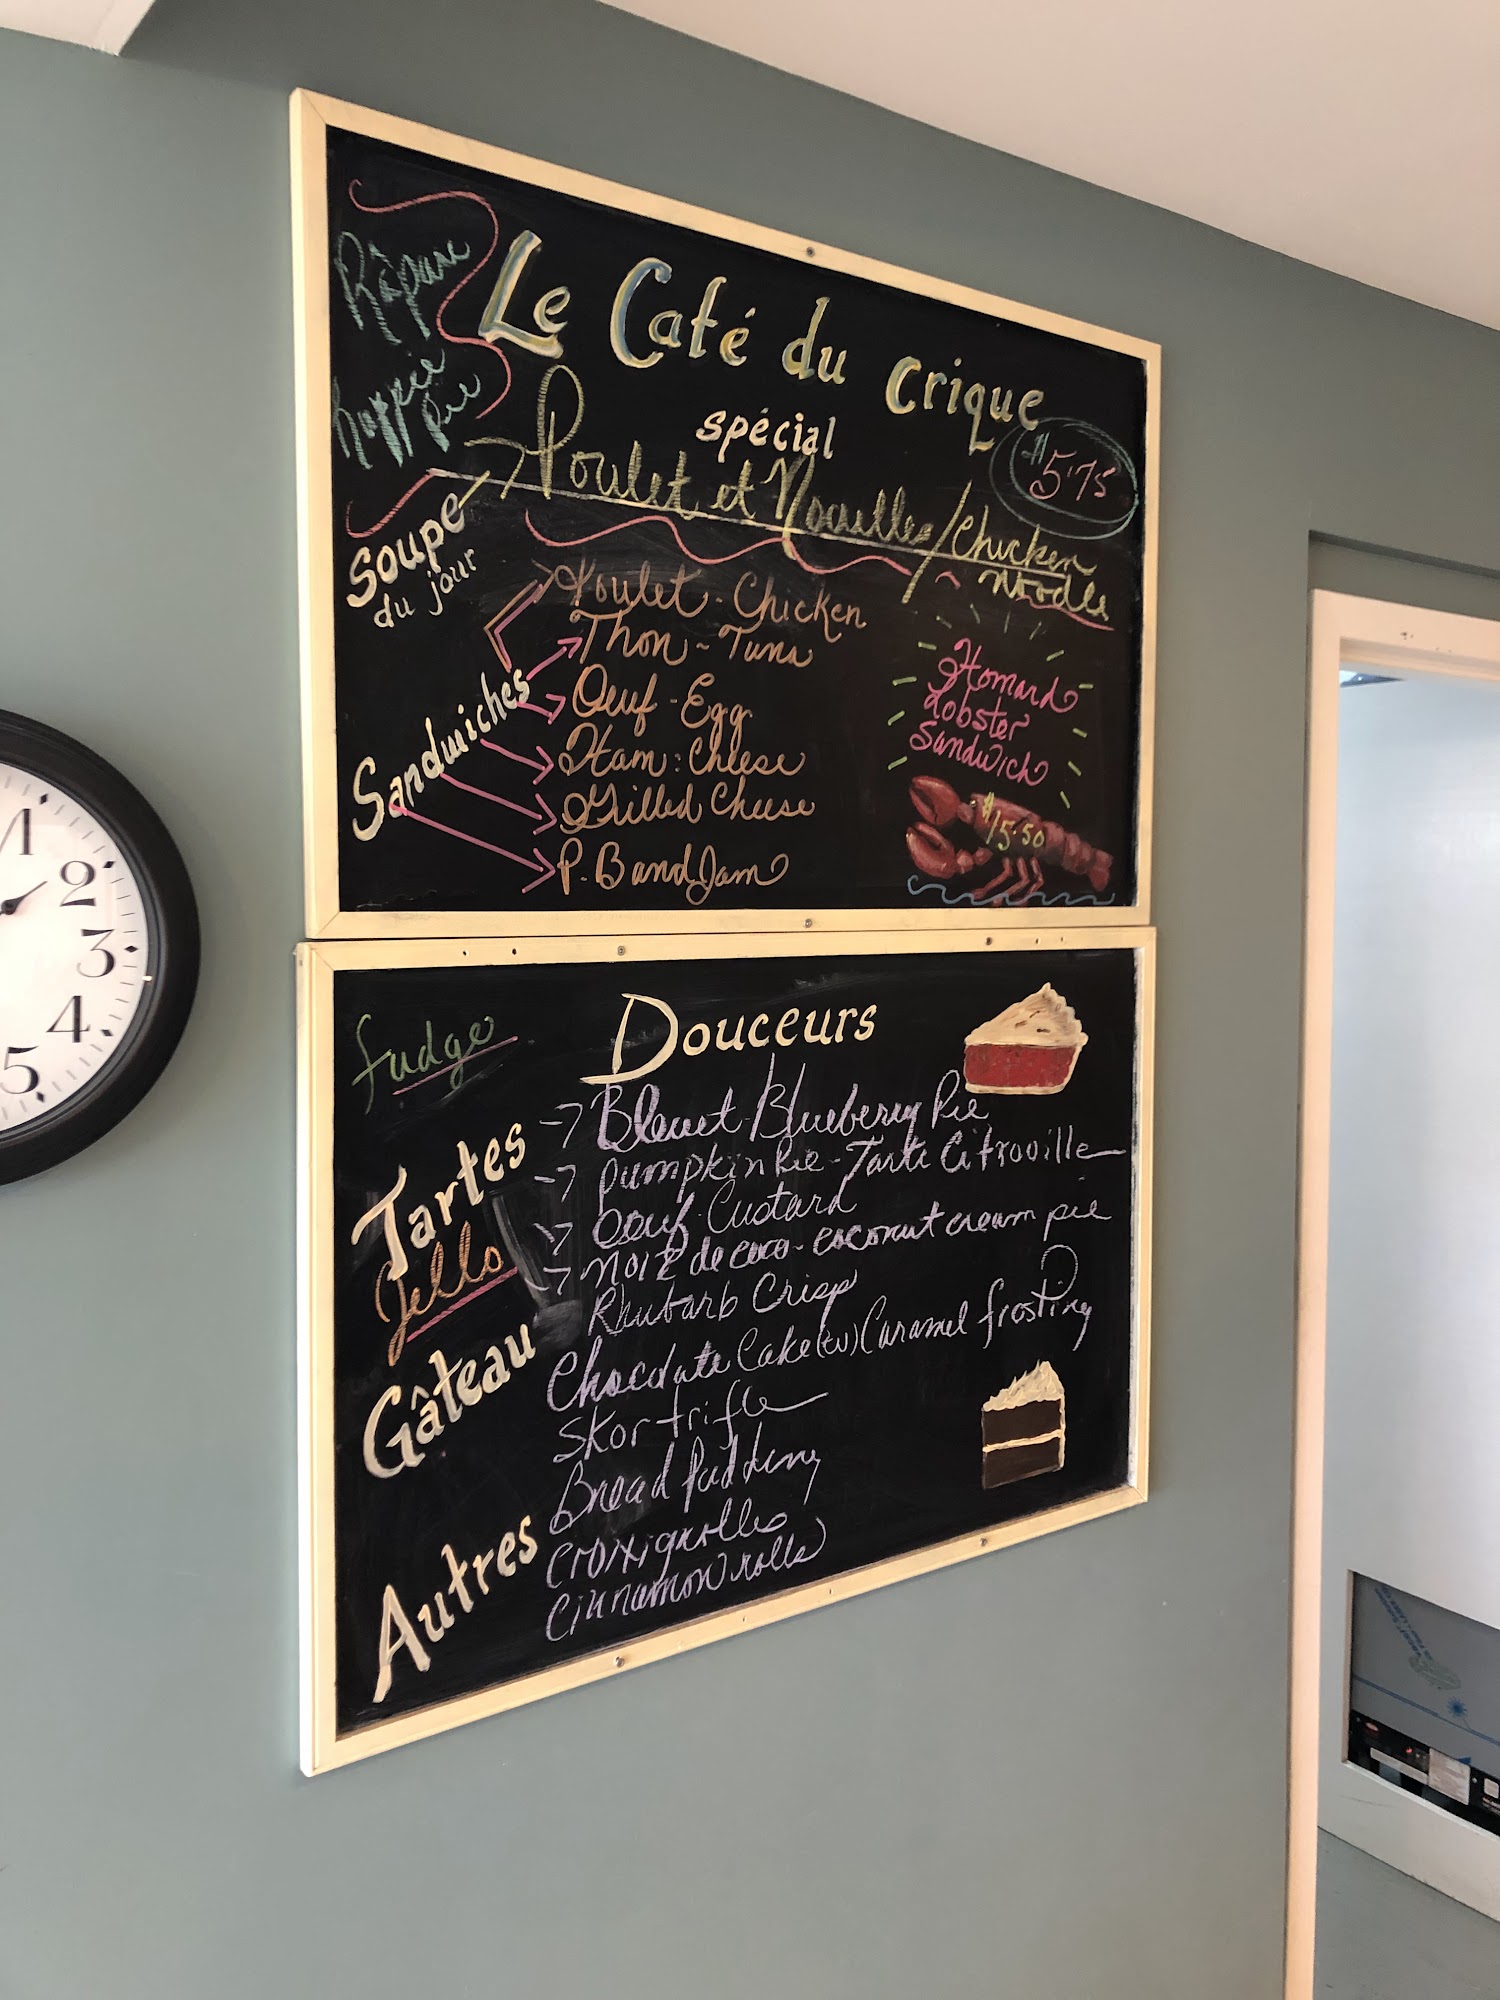 Râpure
Rappie
Pie
Le Café du Crique
spécial
$5.75
Poulet et Nouilles/Chicken
Noodle
Soupe
du jour
Sandwiches
Poulet - Chicken
Thon - Tuna
Oeuf - Egg
Ham : Cheese
Grilled Cheese
P. B and Jam
Homard
Lobster
Sandwich
$15.50
fudge
Douceurs
Tartes
Bleuet - Blueberry Pie
Pumpkin Pie - Tarte Citrouille
Oeuf - Custard
noix de coco - coconut cream pie
Jello
Rhubarb Crisp
Gâteau
Chocolate Cake (w) Caramel frosting
Skor trifle
Bread Pudding
Autres
Croixignolles
Cinnamon rolls
1
2
3
4
5